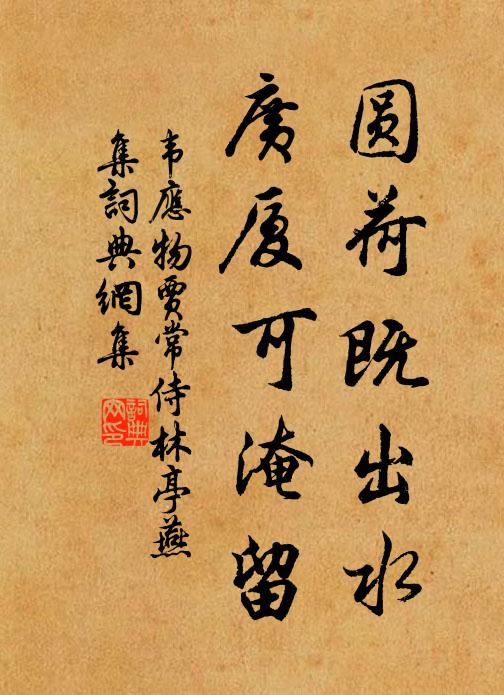 圆荷既出水
廣厦可淹留
韦應物賈常侍林亭燕
集詞典網集
詞典網印